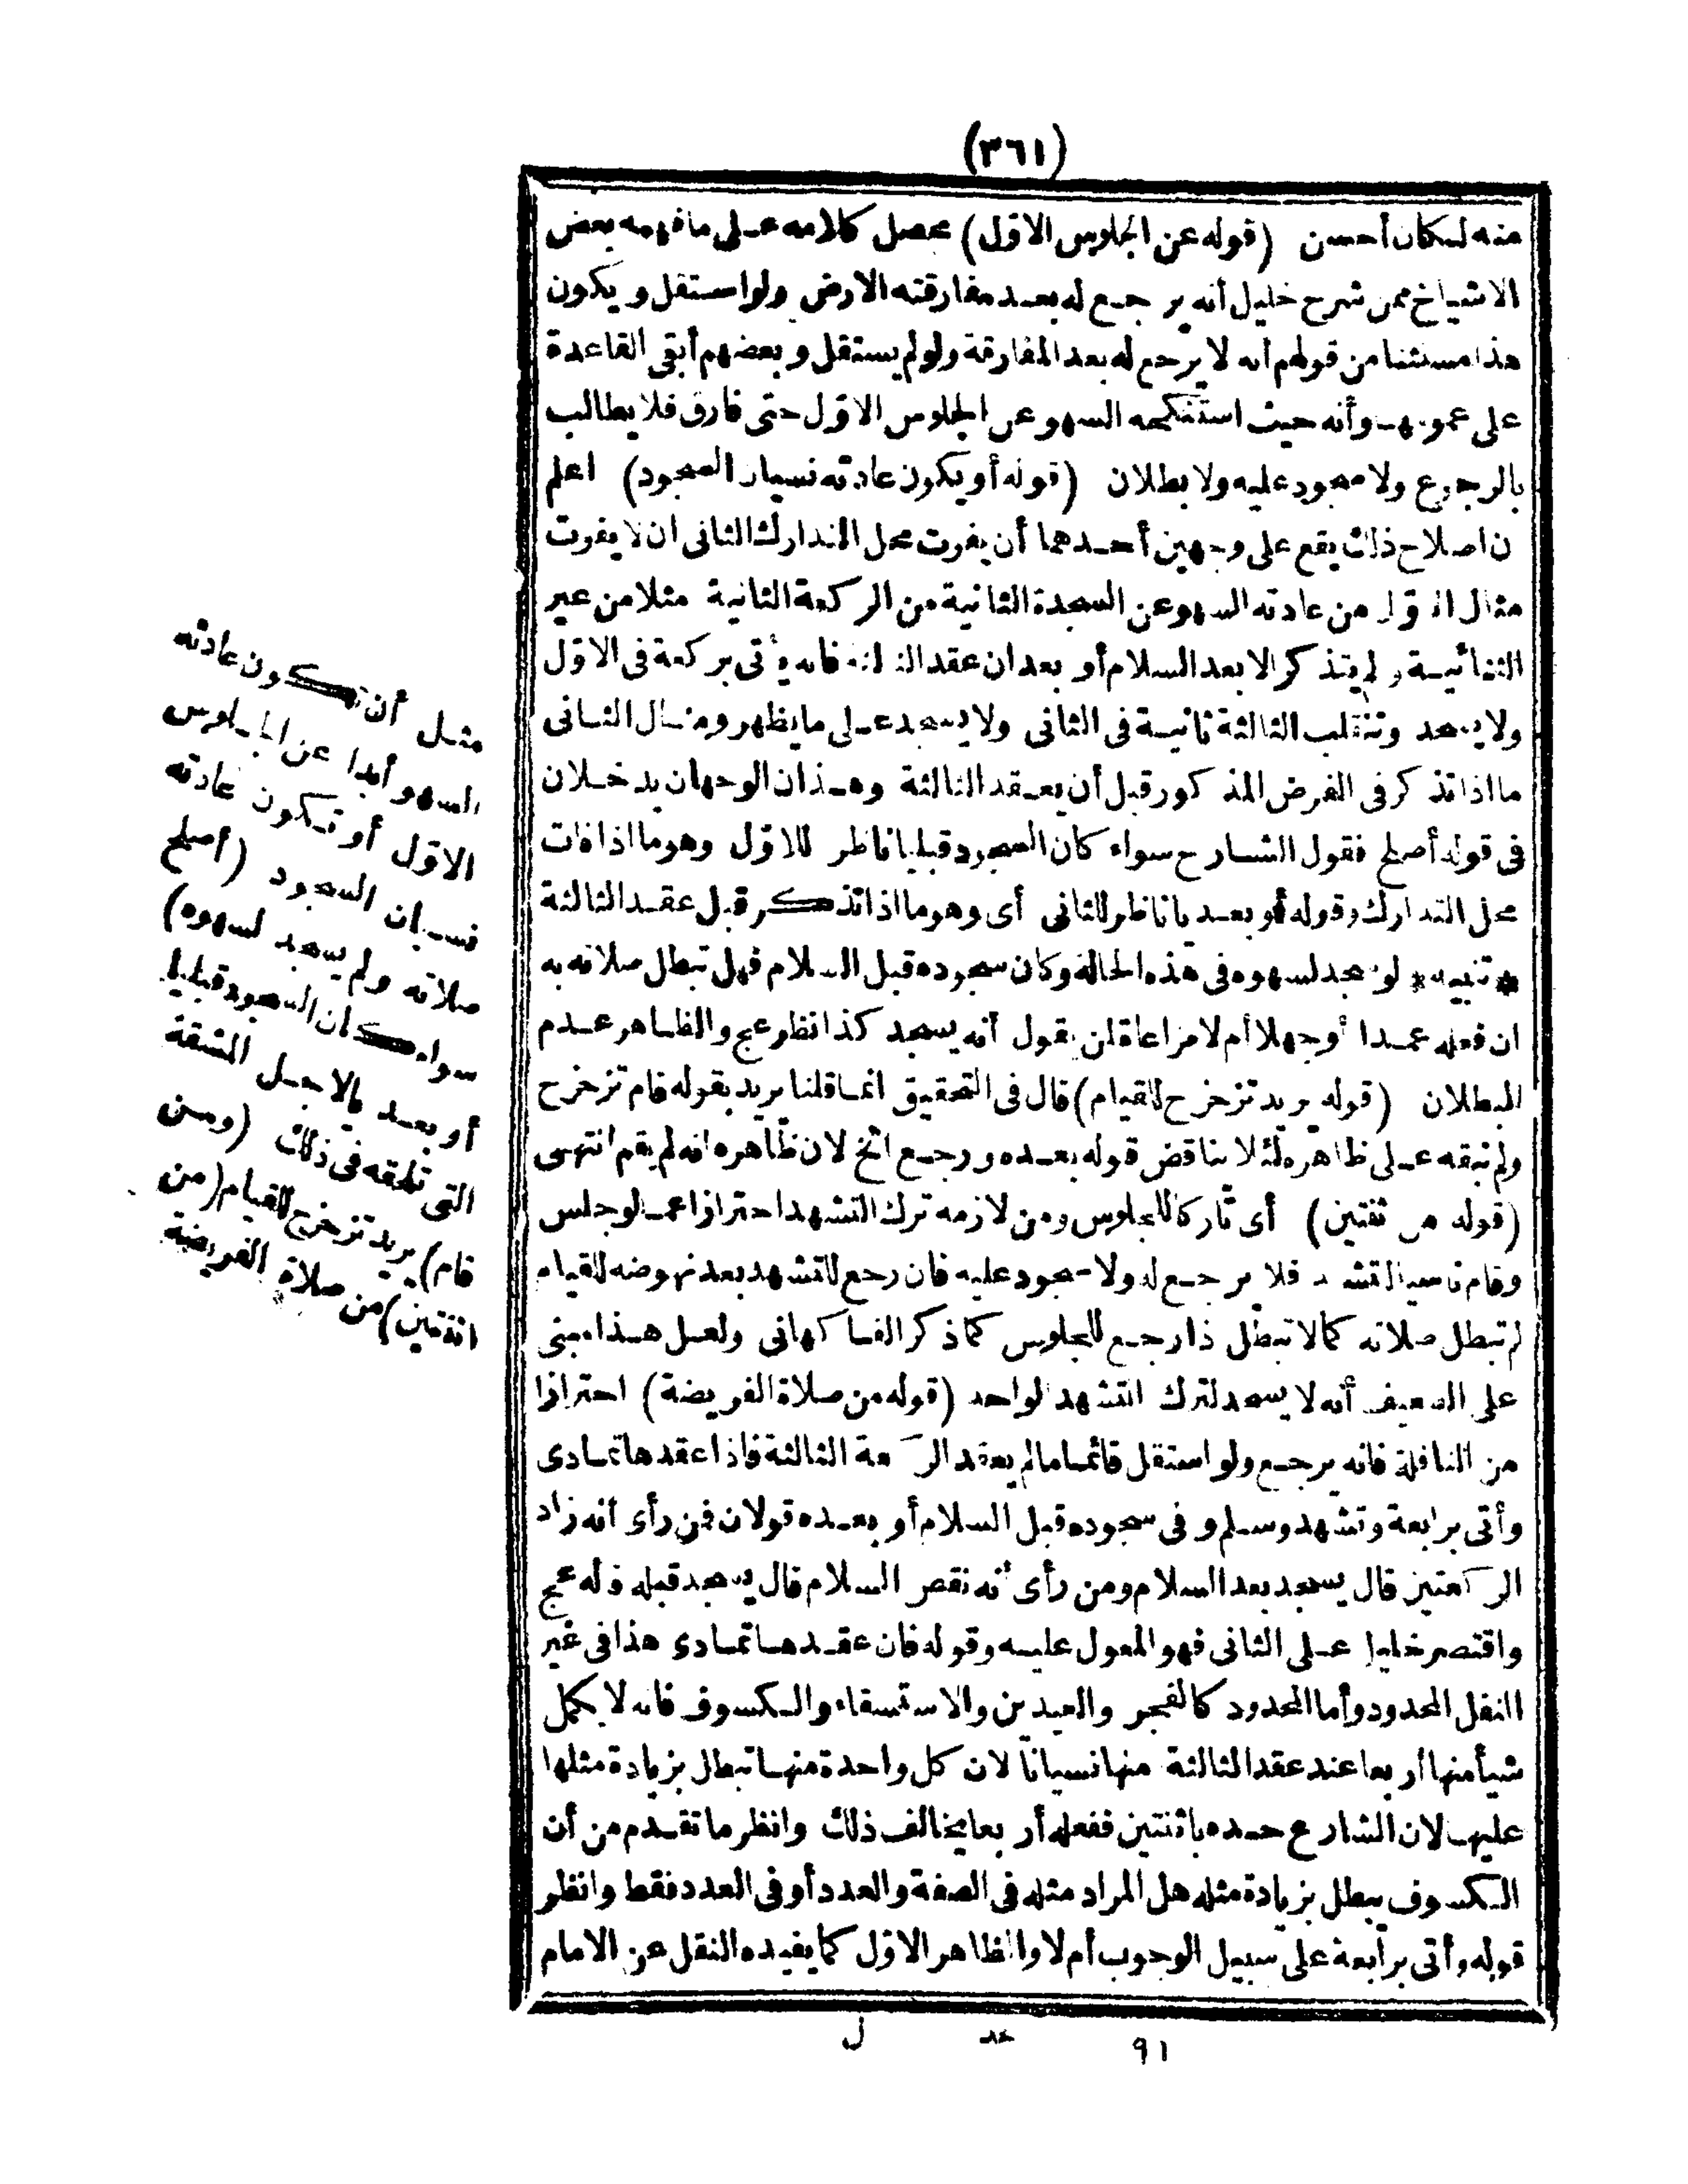 (٣٦١)
منه لكان أحسن (قوله عن الجلوس الاول) محصل كلامه على ما فهمه بعض
الاشياخ ممن شرح خليل أنه يرجع له بعد مفارقته الارض ولو استقل ويكون
هذا مستثنا من قولهم أنه لا يرجع له بعد المفارقة ولو لم يستقل وبعضهم أبقى القاعدة
على عمومها وأنه حيث استنكحه السهو عن الجلوس الاول حتى فارق فلا يطالب
بالرجوع ولا سجود عليه ولا بطلان (قوله أو يكون عادته نسيان السجود) اعلم
ن اصلاح ذلك يقع على وجهين أحدهما أن يفوت محل التدارك الثانى ان لا يفوت
مثال الاول من عادته السهو عن السجدة الثانية من الركعة الثانية مثلا من غير
الثنائية ولم يتذكر الا بعد السلام أو بعد ان عقد الثالثة فانه يأتى بركعة فى الاول
ولا يسجد وتنقلب الثالثة ثانية فى الثانى ولا يسجد على ما يظهر ومثال الثانى
ما اذا تذكر فى الفرض المذكور قبل أن يعقد الثالثة وهذان الوجهان يدخلان
فى قوله أصلح فقول الشارح سواء كان السجود قبليا ناظر للاول وهو ما اذا فات
محل التدارك وقوله أو بعديا ناظر للثانى أى وهو ما اذا تذكر قبل عقد الثالثة
*تنبيه* لو سجد لسهوه فى هذه الحالة وكان سجوده قبل السلام فهل تبطل صلاته به
ان فعله عمدا أوجهلا أم لا مراعاة لمن يقول أنه يسجد كذا انظر عج والظاهر عدم
البطلان (قوله يريد تزحزح للقيام) قال فى التحقيق انما قلنا يريد بقوله قام تزحزح
ولم نبقه على ظاهره لئلا يناقض قوله بعده ورجع الخ لان ظاهره انه لم يقم انتهى
(قوله من ثنتين) أى تاركا للجلوس ومن لازمه ترك التشهد احترازا عما لو جلس
وقام ناسيا التشهد فلا يرجع له ولا سجود عليه فان رجع للتشهد بعد نهوضه للقيام
لم تبطل صلاته كما لا تبطل اذا رجع للجلوس كما ذكر الفاكهانى ولعل هذا مبنى
على الضعيف أنه لا يسجد لترك التشهد الواحد (قوله من صلاة الفريضة) احترازا
من النافلة فانه يرجع ولو استقل قائما ما لم يعقد الركعة الثالثة فاذا عقدها تمادى
وأتى برابعة وتشهد وسلم وفى سجوده قبل السلام أو بعده قولان فمن رأى أنه زاد
الركعتين قال يسجد بعد السلام ومن رأى أنه نقص السلام قال يسجد قبله قاله عج
واقتصر خليل على الثانى فهو المعول عليه وقوله فان عقدها تمادى هذا فى غير
النفل المحدود وأما المحدود كالفجر والعيدين والاستسقاء والكسوف فانه لا يكمل
شيأ منها أربعا عند عقد الثالثة منها نسيانا لان كل واحدة منها تبطل بزيادة مثلها
عليها لان الشارع حده باثنتين ففعله أربعا يخالف ذلك وانظر ما تقدم من أن
الكسوف يبطل بزيادة مثله هل المراد مثله فى الصفة والعدد أو فى العدد فقط وانظر
قوله وأتى برابعة على سبيل الوجوب أم لا والظاهر الاول كما يفيده النقل عن الامام
مثل أن تكون عادته
السهو أبدا عن الجلوس
الاول أو تكون عادته
نسيان السجود (أصلح
صلاته ولم يسجد لسهوه)
سواء كان السجود قبليا
أو بعديا لاجل المشقة
التى تلحقه فى ذلك (ومن
قام) يريد تزحزح للقيام (من
اثنتين) من صلاة الفريضة
٩١ عد ل